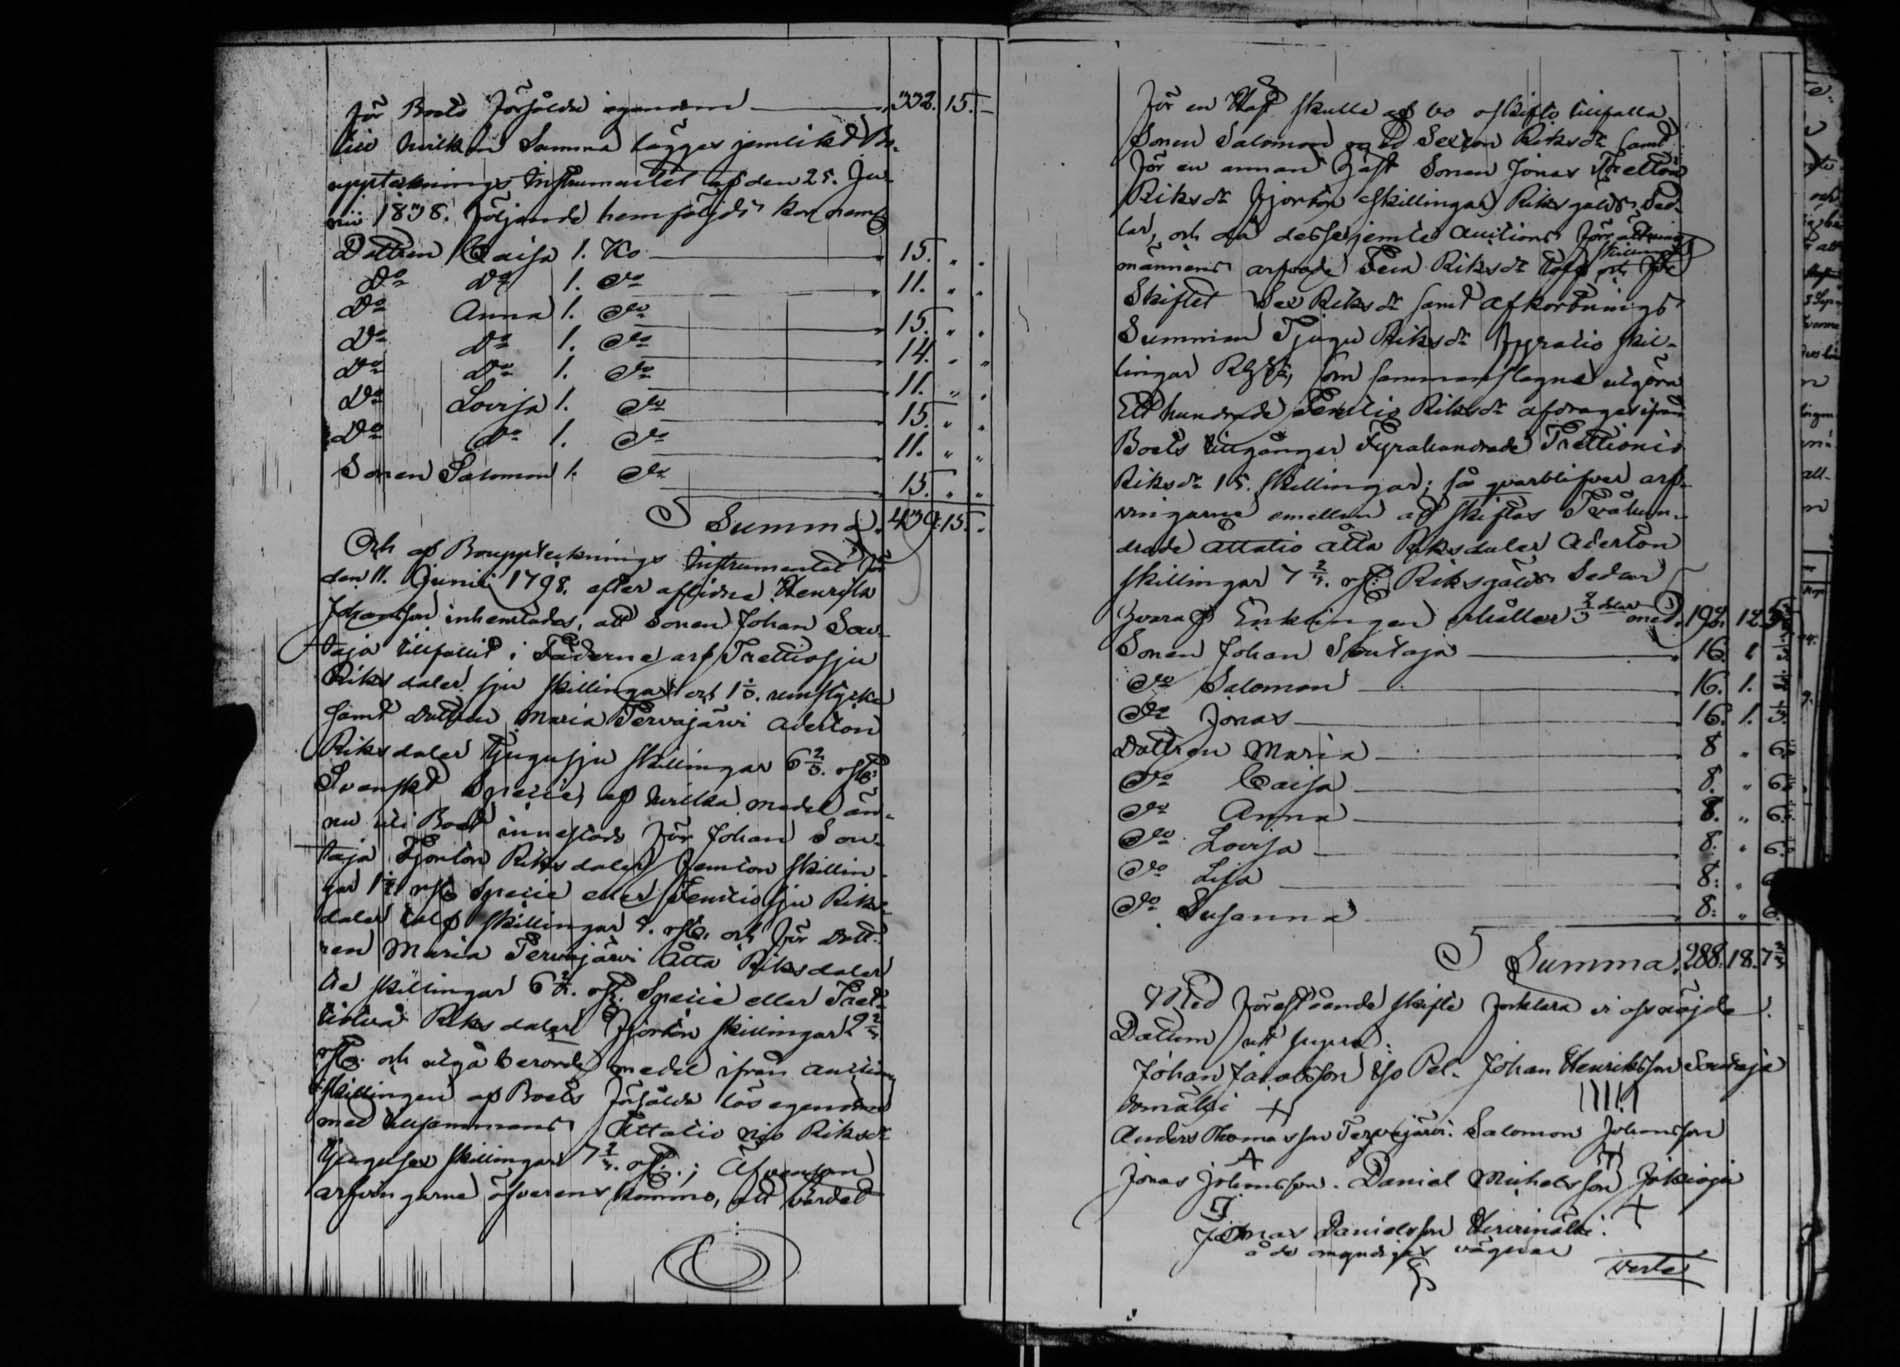 för Boets försålda egendom 332. 15. –
till hvilken Summa lägges jemlikt Bo-
uppteknings Instrumentet af den 25. Ju-
nii 1838. följande hemföljds kor nemt
Dottren Caisa 1. Ko 15. " "
Do Do 1. do 11. " "
Do Anna 1. do 15. " "
Do Do 1. do 14. " "
Do Do 1. do 11. " "
Do Lovisa 1. do 15. " "
Do Do 1. do 11. " "
Sonen Salomon 1. do 15. " "
Summa. 439. 15. –
Och af Bouppteknings Instrumentet för
den 11. Junii 1798. efter aflidne Henrik
Johansson inhemtades, att Sonen Johan Sou-
taja tillfallit i Fäderne arf Trettiosju
Riksdaler sju skillingar och 1 runstycke
samt dottren Maria Tervajärvi Aderton
Riksdaler tjugusju skillingar 6 2/3. rst:
Svenskt Specie, af hvilka medel än-
nu uti Boet innestods för Johan Sou-
taja Fjorton Riksdaler femton skillin-
gar rst Specie eller Femtiosju Riks-
daler tolf skillingar rst. och för dott-
ren Maria Tervajärvi Åtta Riksdaler
skillingar 6 rst. Specie eller Tret-
tiotvå Riksdaler fjorton skillingar
rst. och utgå berörde medel ifrån auctions
skillingen af Boets försålda lösegendom
med tillsammans Åttatio nio Riksdr
tjugusex skillingar 7 rst.; Äfvensom
arfvingarne öfverens kommo, att värdet
för en Häst skulle af bo oskifto tillfalla
Sonen Salomon med Sexton Riksdr samt
för en annan häst Sonen Jonas Tretton
Riksdr fjorton skillingar Riksgälds Sed-
lar, och då dessa jemte auctions förrättnings
männens arfvode Fem Riksdr Tolf skillingar och för
Skiftet Sex Riksdr samt afkortnings
Summan Tjugu Riksdr fyratio skil-
lingar RGS, som sammanslagne utgöra
Ett hundrade Femtio Riksdr afdrages ifrån
Boets tillgångar Fyrahundrade Trettionio
Riksdr 15. skillingar; så qvarblifver arf-
vingarne emellan att skiftas Tvåhun-
drade åttatio åtta Riksdaler Aderton
skillingar 7 2/3. rst: Riksgälds Sedlar
hvaraf Enklingen erhåller 2/3 delar med. 192. 12.
Sonen Johan Soutaja 16. "
Do Salomon 16. 1.
Do Jonas 16. 1.
Dottren Maria 8 " 6
Do Caisa 8. " 6
Do Anna 8. " 6
Do Lovisa 8. " 6
Do Lisa 8. "
Do Susanna 8. " 6
Summa. 288. 18. 7 2/3
Med föreståede skifte förklara vi oss nöjde.
Datum ut supra:
Johan Jacobsson Johan Henriksson Soutaja
Anders Thomasson Tervajärvi. Salomon Johansson
Jonas Johansson. Daniel Michelsson Jokioja
Jonas Danielsson
å de omyndigas vägnar
Verte